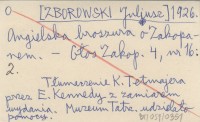 O [ZBOROWSKI Juljusz] 1926.
Angielska broszura o Zakopa-
nem. – Głos Zakop. 4, nr 16:
2.
Tłumaczenie K. Tetmajera
przez E. Kennedy z zamiarem
wydania. Muzeum Tatrz. udzieliło
pomocy.